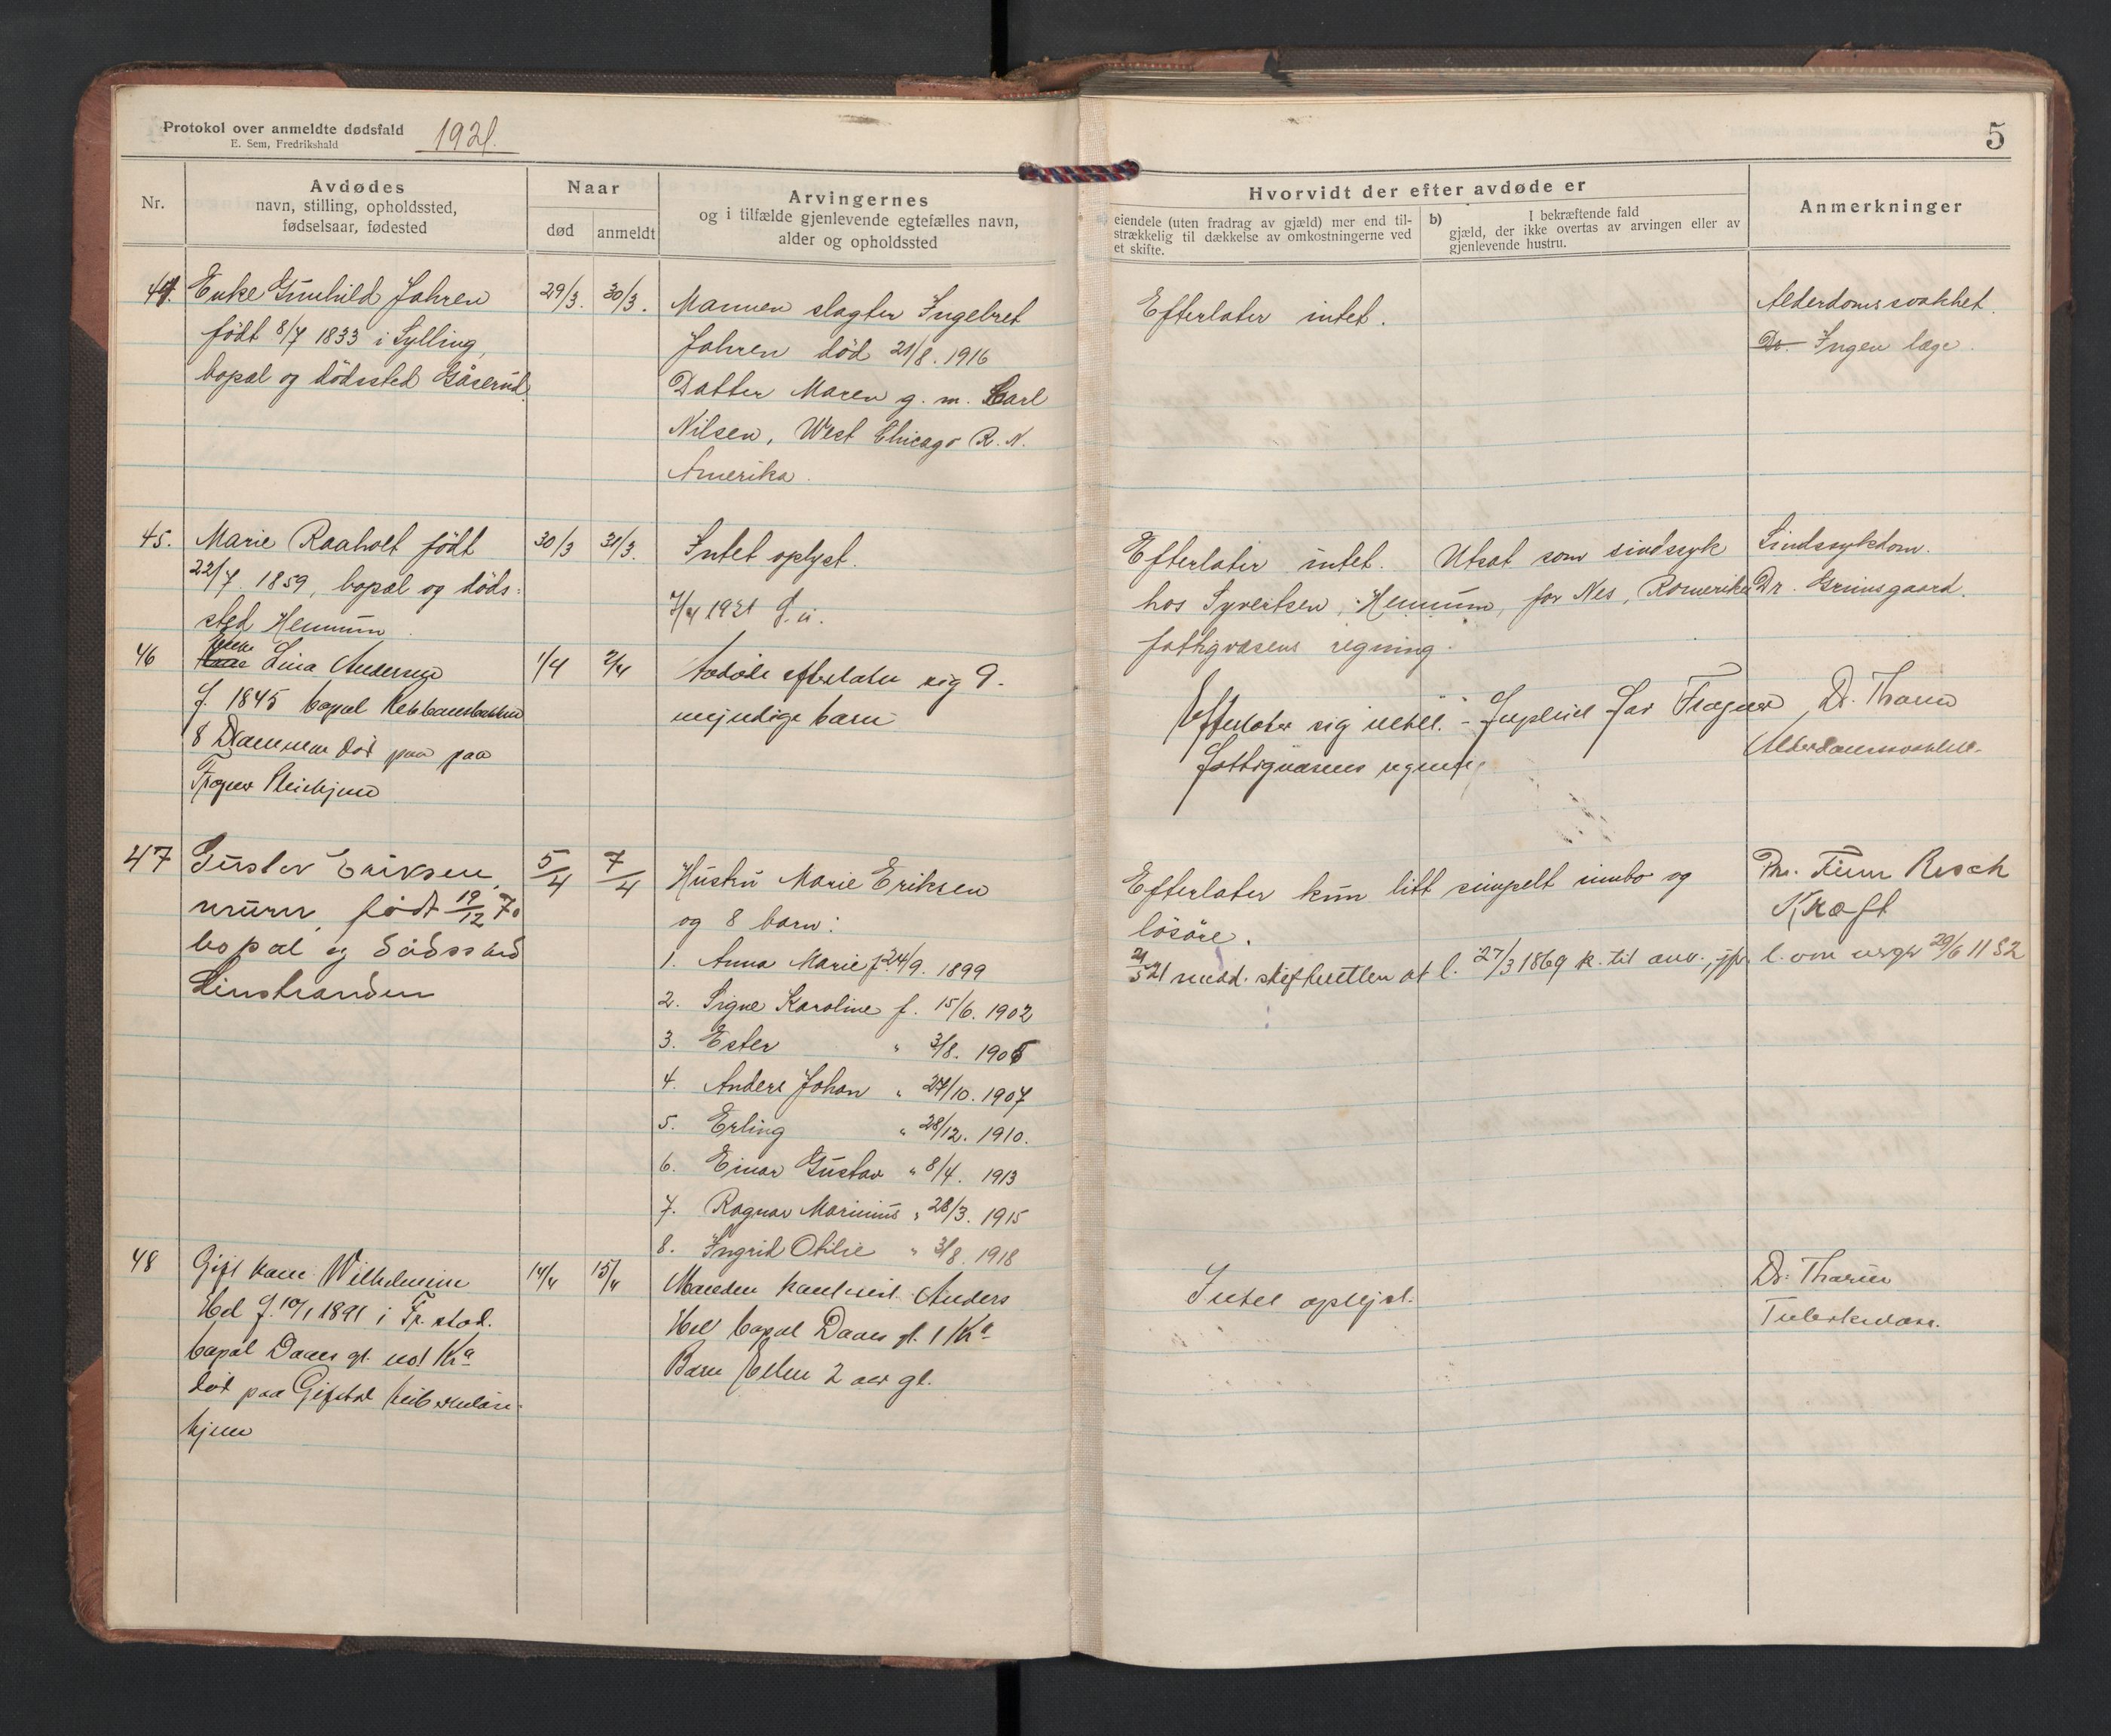 Protokol over anmeldte dødsfald 1921.
E. Sem, Fredrikshald
5
Nr.
Avdødes
navn, stilling, opholdssted,
fødselsaar, fødested
Naar
død
anmeldt
Arvingernes
og i tilfælde gjenlevende egtefælles navn,
alder og opholdssted
Hvorvidt der efter avdøde er
eiendele (uten fradrag av gjæld) mer end til-
strækkelig til dækkelse av omkostningerne ved
et skifte.
b) I bekræftende fald
gjæld, der ikke overtas av arvingen eller av
gjenlevende hustru.
Anmerkninger
44. Enke Gunhild Jahren
født 8/7 1833 i Sylling,
bopæl og dødssted Gåserud.
29/3. 30/3.
Mannen slagter Ingebret
Jahren død 21/8. 1916
Datter Maren g. m. Carl
Nilsen, West Chicago R. N.
Amerika.
Efterlater intet.
Alderdomssvakhet.
Dr. Ingen læge.
45. Marie Raaholt født
22/7. 1859, bopæl og døds-
sted Hennum.
30/3 31/3.
Intet oplyst.
7/4 1921
Efterlater intet. Utsat som sindssyk
hos Syvertsen, Hennum, for Nes, Romerike
fattigvæsens regning.
Sindssykdom.
Dr. Grimsgaard.
46 Enke Lina Andersen
f. 1845 bopæl
8 Drammen død paa paa
Frogner Pleiehjem
1/4 2/4
Avdøde efterlater sig 9
myndige barn
Efterlater sig intet. - for Frogner
Fattigvæsens regning
Dr. Tharin
Alderdomssvakhet.
47 Gustav Eriksen,
murer, født 19/12 70
bopæl og dødssted
Linstranden
5/4 7/4
Hustru Marie Eriksen
og 8 barn:
1. Anna Marie f. 24/9. 1899
2. Signe Karoline f. 15/6. 1902
3. Ester " 3/8. 1905
4. Anders Johan " 27/10. 1907
5. Erling " 28/12. 1910.
6. Einar Gustav " 8/4. 1913
7. Ragnar Marinius " 28/3. 1915
8. Ingrid Otilie " 3/8. 1918
Efterlater kun litt simpelt innbo og
løsøre.
21/5 21 medd. skifteretten at l. 27/3 1869 k. til anv., jfr. l. om verger 29/6 11 § 2
Dr. Finn Resch
Kræft
48 Gift kone Wilhelmine
Hol f. 10/1 1891 i Fr. stad.
bopæl Daaes gt. no 1 Kra
død paa Gifstad tuberkulose-
hjem
14/4 15/4
Manden Anders
Hol bopæl Daaes gt. 1 Kra
Barn Ellen 2 aar gl.
Intet oplyst.
Dr. Tharin
Tuberkulose.